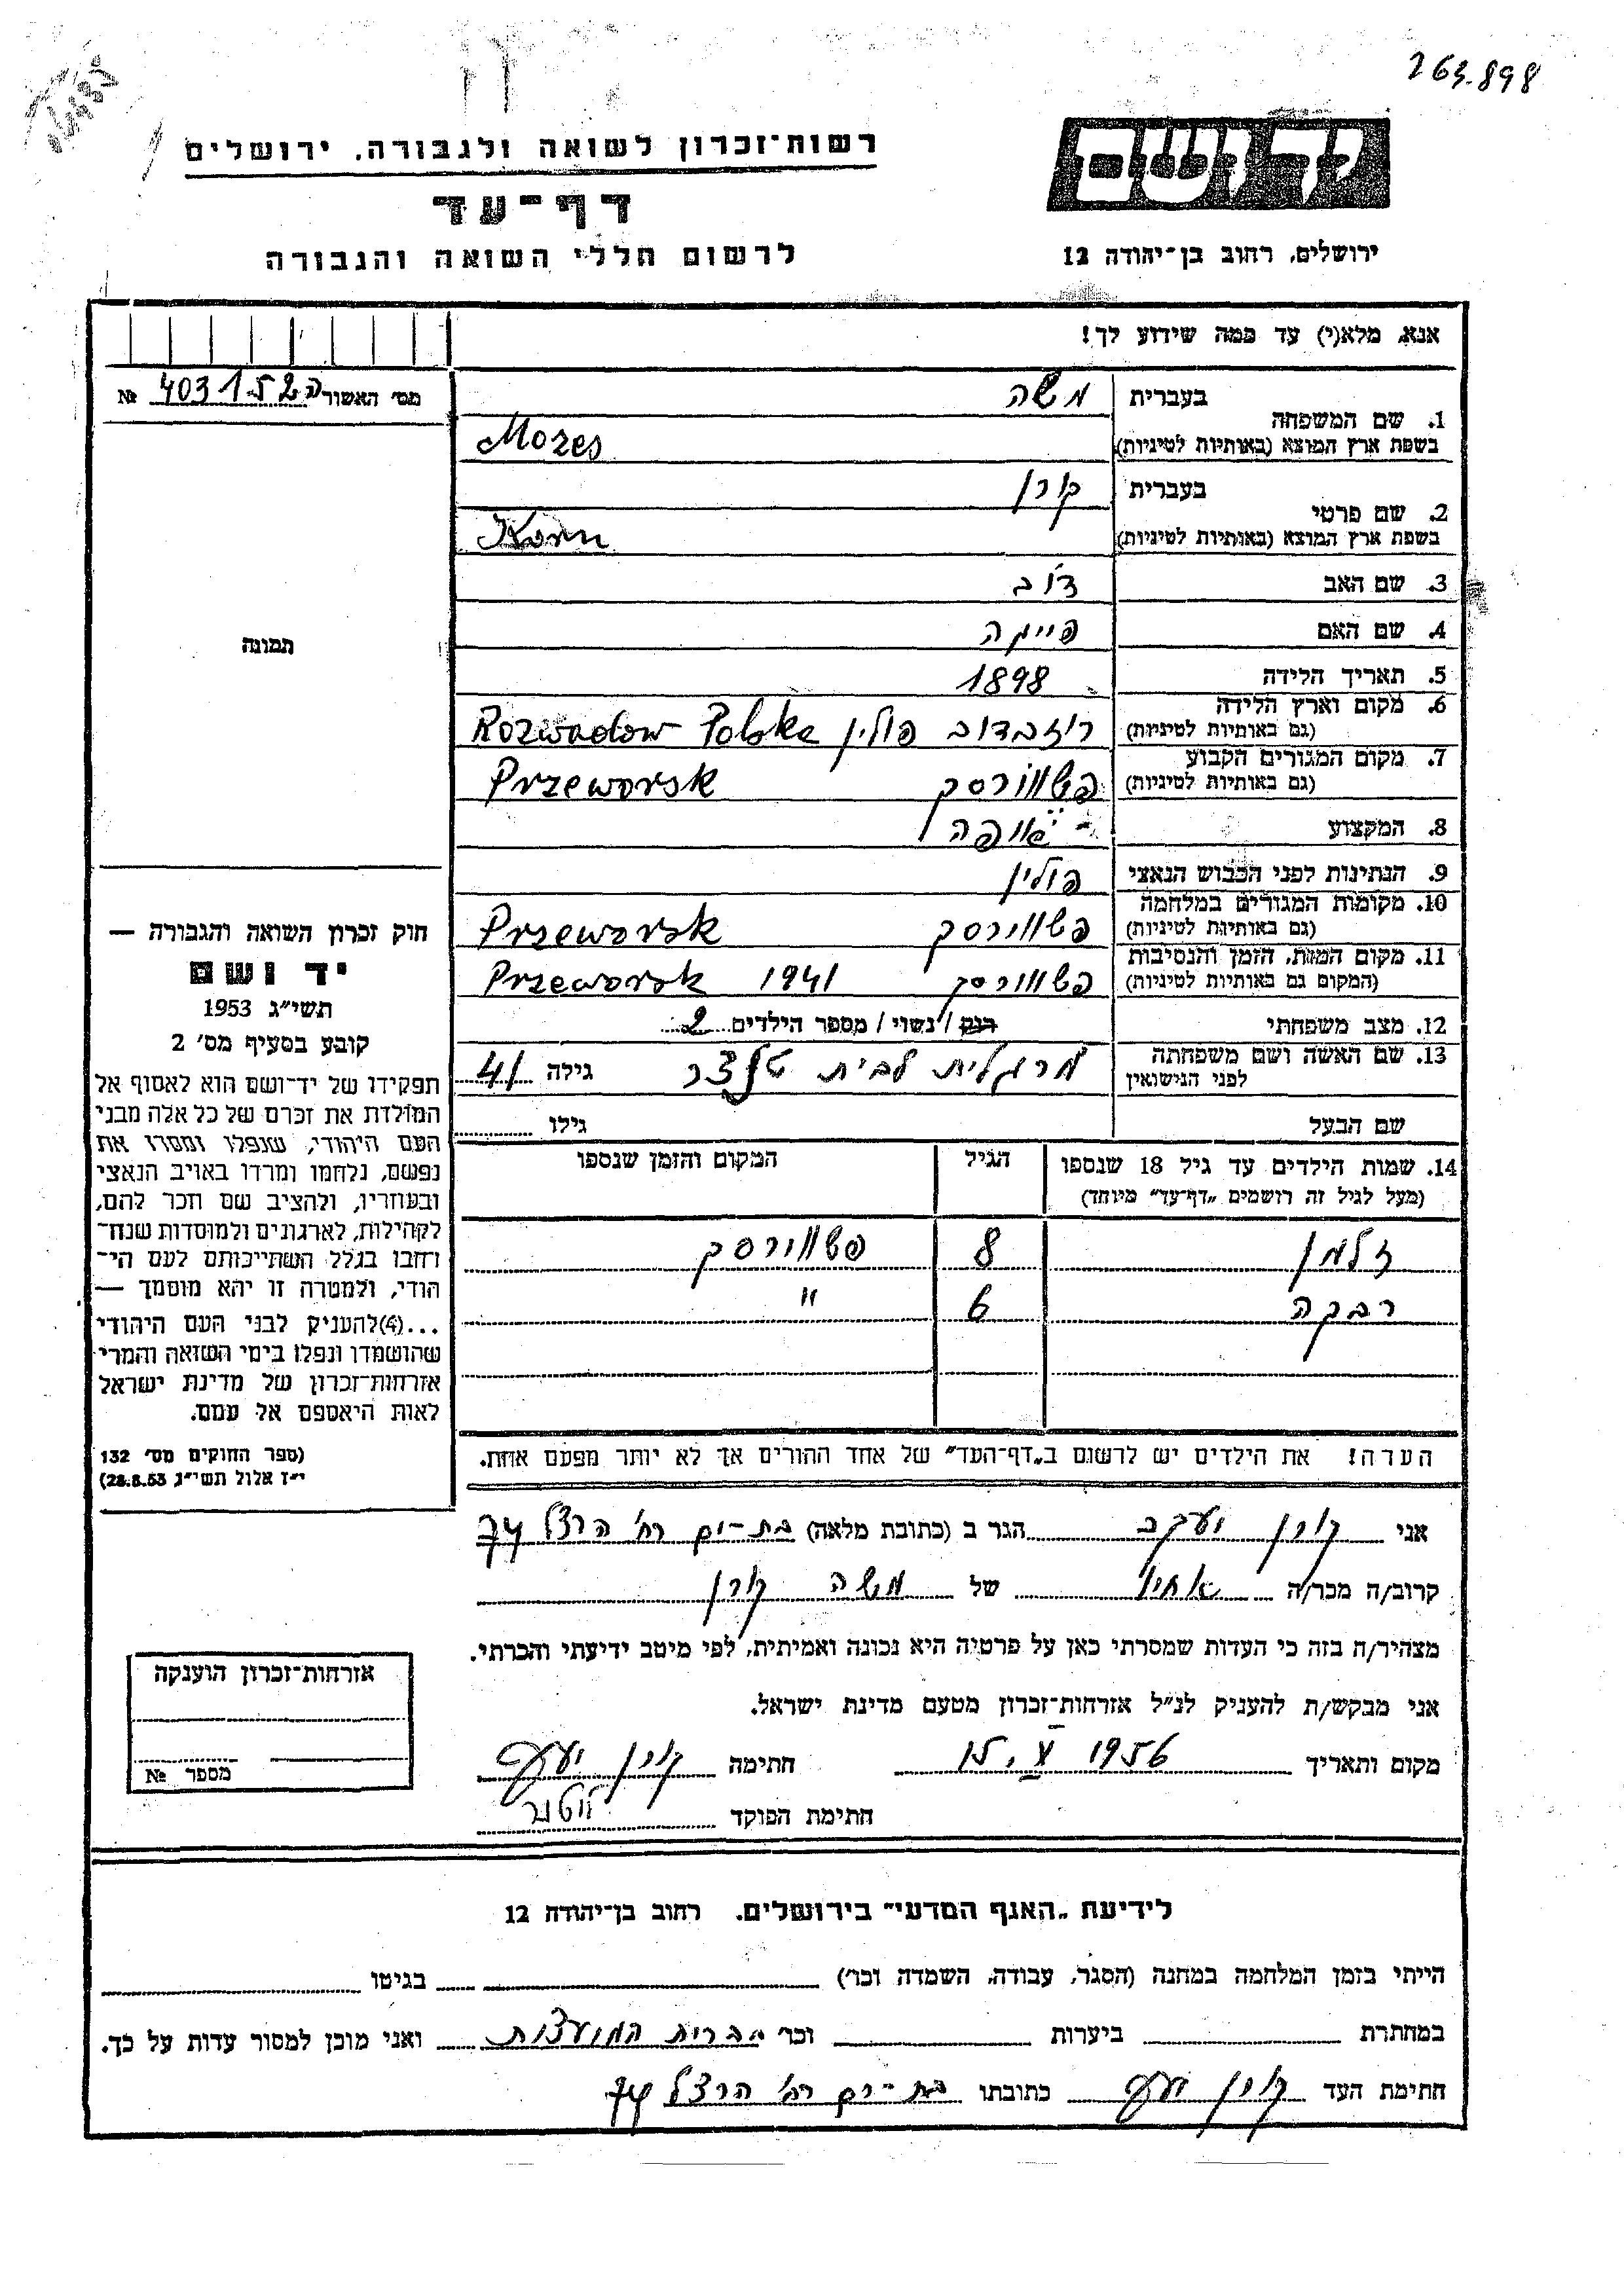 263.898
רשות־זכרון לשואה ולגבורה, ירושלים
יד ושם
דף־עד
לרשום חללי השואה והגבורה
ירושלים, רחוב בן־יהודה 12
אנא, מלא(י) עד כמה שידוע לך!
מס׳ האשור 403152 №
1. שם המשפחה בעברית משה
בשפת ארץ המוצא (באותיות לטיניות) Mozes
2. שם פרטי בעברית קורן
בשפת ארץ המוצא (באותיות לטיניות) Korn
3. שם האב דוב
4. שם האם
5. תאריך הלידה 1898
6. מקום וארץ הלידה (גם באותיות לטיניות) רוזבדוב פולין Rozwadow Polska
7. מקום המגורים הקבוע (גם באותיות לטיניות) פשוורסק Przeworsk
8. המקצוע אופה
9. הנתינות לפני הכבוש הנאצי פולין
10. מקומות המגורים במלחמה (גם באותיות לטיניות) פשוורסק Przeworsk
11. מקום המות, הזמן והנסיבות (המקום גם באותיות לטיניות) פשוורסק 1941 Przeworsk
12. מצב משפחתי רווק / נשוי / מספר הילדים 2
13. שם האשה ושם משפחתה לפני הנישואין מרגלית לבית גילה 41
שם הבעל גילו
14. שמות הילדים עד גיל 18 שנספו (מעל לגיל זה רושמים „דף־עד״ מיוחד) הגיל המקום והזמן שנספו
זלמן 8 פשוורסק
רבקה 6 "
הערה! את הילדים יש לרשום ב„דף־העד״ של אחד ההורים אך לא יותר מפעם אחת.
תמונה
חוק זכרון השואה והגבורה —
יד ושם
תשי״ג 1953
קובע בסעיף מס׳ 2
תפקידו של יד־ושם הוא לאסוף אל
המולדת את זכרם של כל אלה מבני
העם היהודי, שנפלו ומסרו את
נפשם, נלחמו ומרדו באויב הנאצי
ובעוזריו, ולהציב שם וזכר להם,
לקהילות, לארגונים ולמוסדות שנח־
רחבו בגלל השתייכותם לעם הי־
הודי, ולמטרה זו יהא מוסמך —
...(4)להעניק לבני העם היהודי
שהושמדו ונפלו בימי השואה והמרי
אזרחות־זכרון של מדינת ישראל
לאות היאספם אל עמם.
(ספר החוקים מס׳ 132
י״ז אלול תשי״ג 28.8.53)
אני קורן יעקב הגר ב (כתובת מלאה) בת-ים רח׳ הרצל 74
קרוב/ה מכר/ה אחיו של משה קורן
מצהיר/ה בזה כי העדות שמסרתי כאן על פרטיה היא נכונה ואמיתית, לפי מיטב ידיעתי והכרתי.
אני מבקש/ת להעניק לנ״ל אזרחות־זכרון מטעם מדינת ישראל.
מקום ותאריך 15. V 1956 חתימה קורן יעקב
חתימת הפוקד
אזרחות־זכרון הוענקה
מספר №
לידיעת „האגף המדעי״ בירושלים, רחוב בן־יהודה 12
הייתי בזמן המלחמה במחנה (הסגר, עבודה, השמדה וכר׳) בגיטו
במחתרת ביערות וכר׳ בברית המועצות ואני מוכן למסור עדות על כך.
חתימת העד קורן יעקב כתובתו בת-ים רח׳ הרצל 74